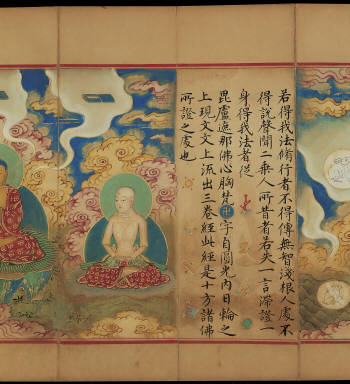 若得我法脩行者不得傳無智淺根人處不
得說聲聞二乘人所昔者右失一言滯證一
身得我法者從
毘盧遮那佛心胸梵卍字自圓光內日輪之
上現文文上流出三卷經此經是十方諸佛
所證之處也